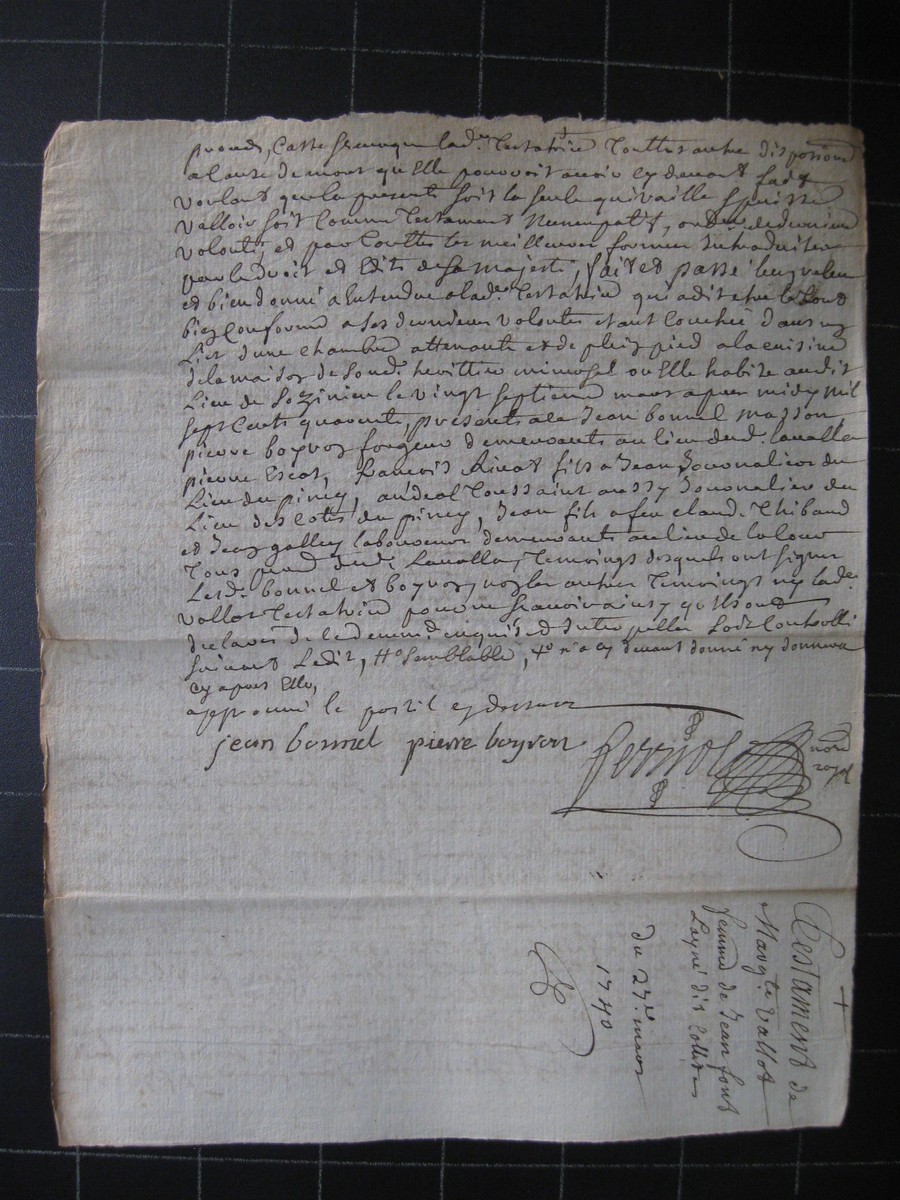 prouds, Casse Revoque lad.e Testatrice Touttes autre dispositions
a Cause de mort qu'Elle pouvoit avoir cy devant fait
voulant que la presente soit la seule qui vaille & puisse
valloir soit Comme Testament Nuncupatif, ou de derniere
volonté, et par touttes les meilleures formes Introduittes
par le droit et Edits de Sa majesté, fait et passé leu, releu
et bien donné a Entendre a lad.e Testatrice qui a dit etre le tout
bien Conforme a ses dernieres volontés etant Couchée dans un
Lict d'une Chambre attenante et de plein pied a la cuisine
de la maison de Soud. heritier ou Elle habite audit
Lieu de le vingt septieme mars apres midy mil
sept Cents quarante, presents a ce Jean bonnel masson
pierre boyron forgeur demeurants au lieu dud. Lavalla
pierre Escot, francois fils a Jean Journalier du
Lieu du piney, Toussaint aussy Journalier du
Lieu des Cotes du piney, Jean fils a feu Claude Thibaud
et Jean galley laboureur demeurants au lieu de
Tous dud. Lavalla, Temoings desquels ont signer
Lesd. bonnel et boyron, non les autres Temoings ny lad.e
vallot Testatrice pour ne scavoir ainsy qu'ils ont
declaré de ce deument enquis et Interpellés Soit Controllé
suivant Ledit, n'a cy devant donné ny donnera
cy apres Elle,
approuvé le postil cy dessus
jean bonnel pierre boyron
not.re
royal
Testament de
Marg.te vallot
femme de Jean font
Layné dit
du 27.e mars
1740